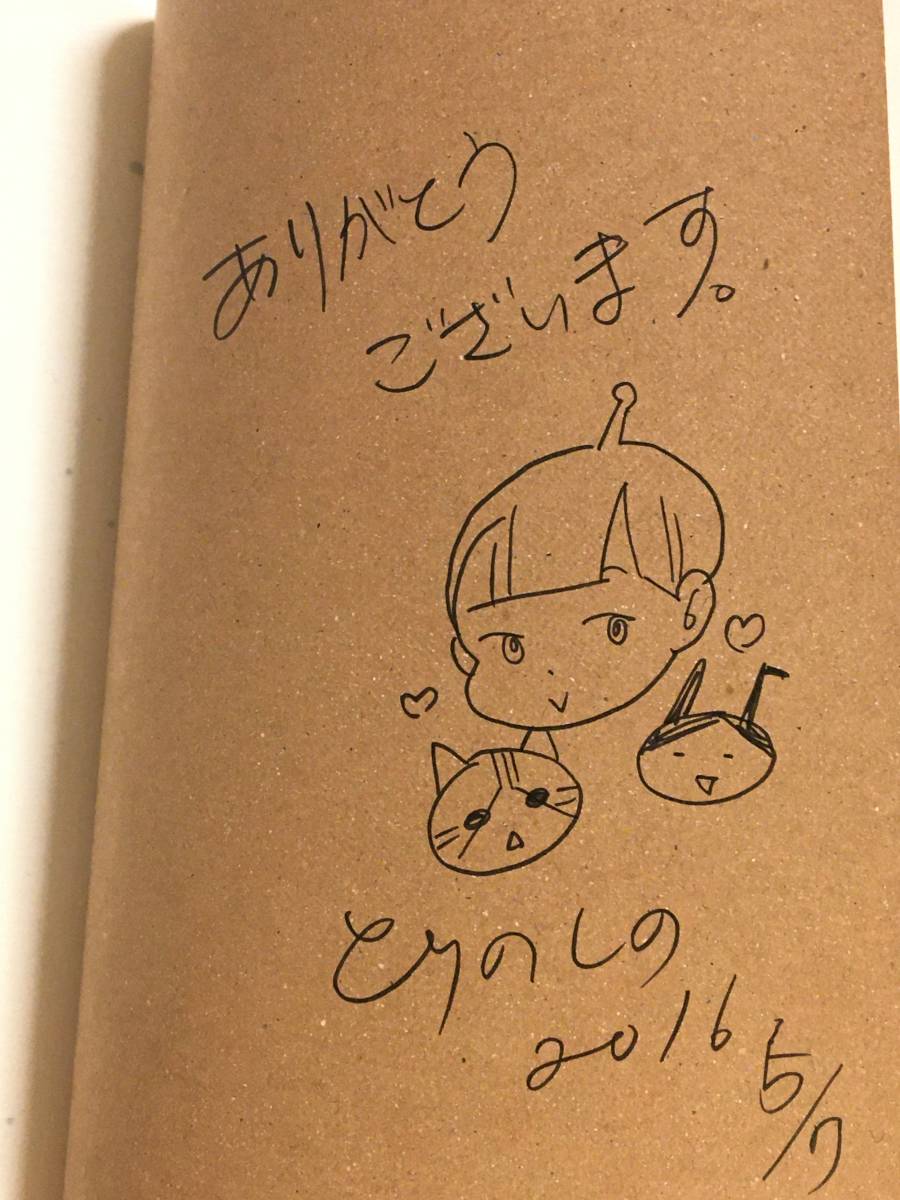 ありがとう
ございます。
とりのしの
2016
5/7